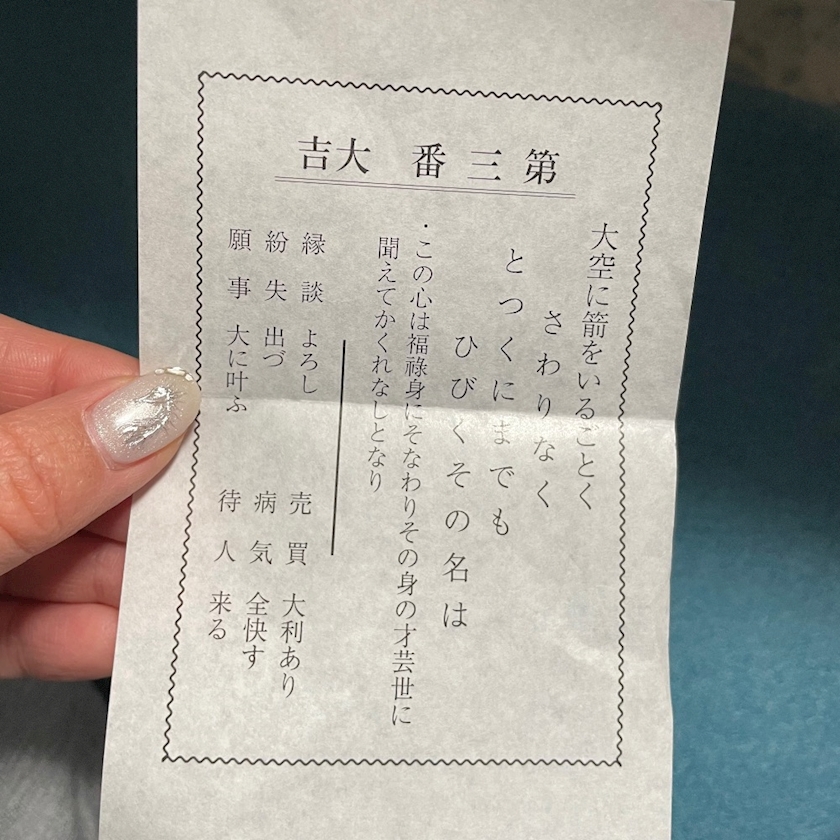 第三番 大吉
大空に箭をいるごとく
さわりなく
とつくにまでも
ひびくその名は
・この心は福祿身にそなわりその身の才芸世に
聞えてかくれなしとなり
縁談 よろし
紛失 出づ
願事 大に叶ふ
売買 大利あり
病気 全快す
待人 来る